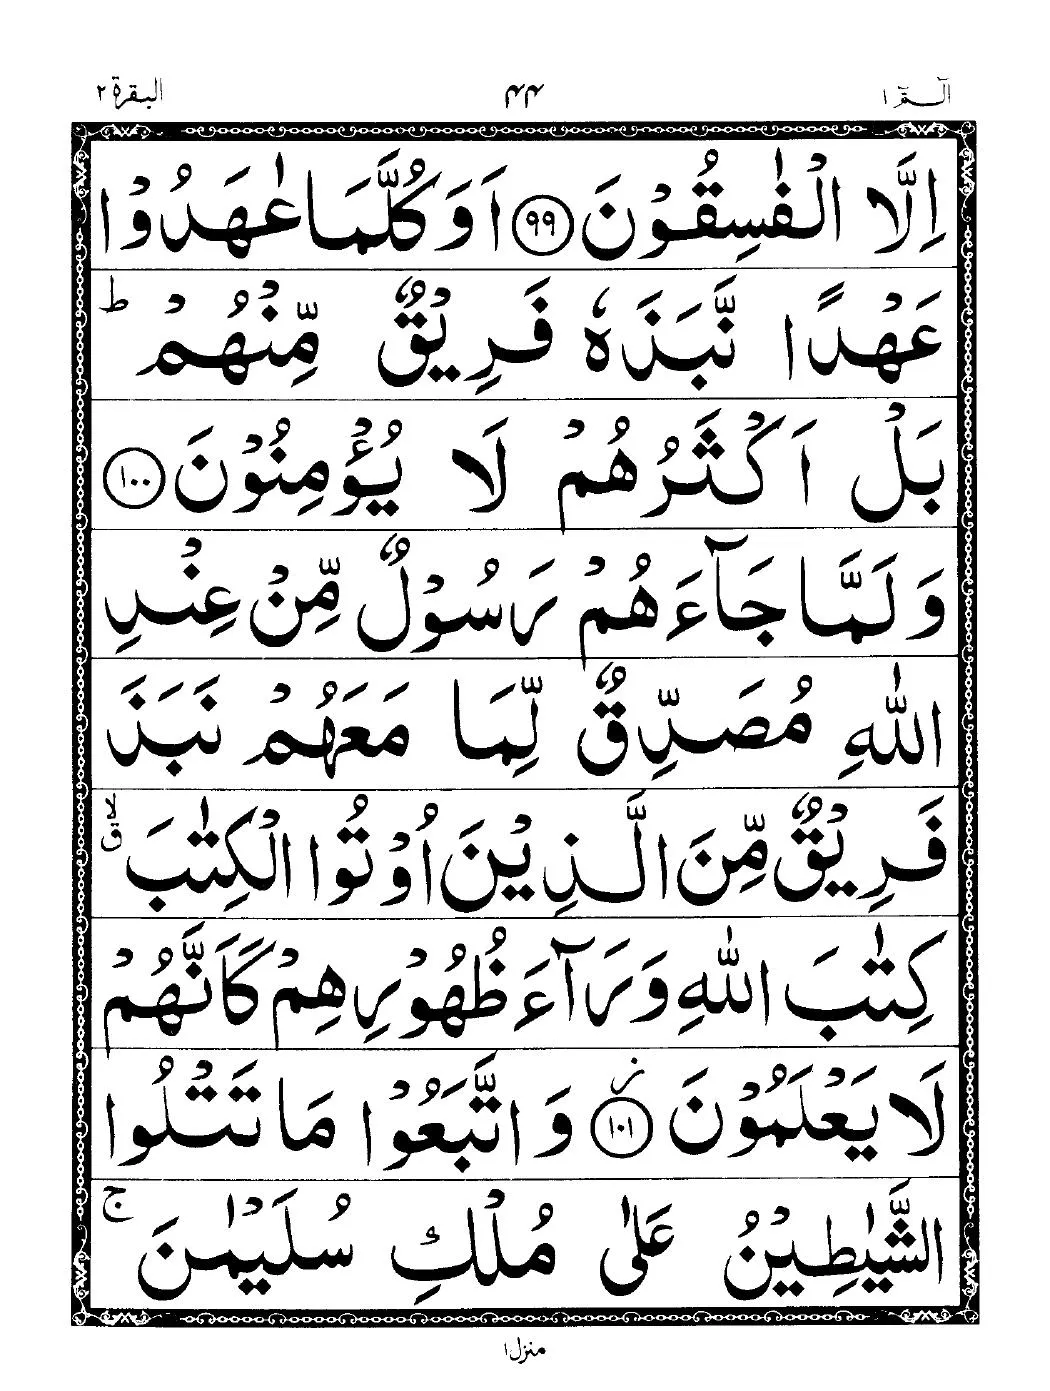 الٓمّٓ ١ ٤٤ البقرة ٢
اِلَّا الْفٰسِقُوْنَ ﴿٩٩﴾ اَوَكُلَّمَا عٰهَدُوْا
عَهْدًا نَّبَذَهٗ فَرِيْقٌ مِّنْهُمْ ؕ
بَلْ اَكْثَرُهُمْ لَا يُؤْمِنُوْنَ ﴿١٠٠﴾
وَلَمَّا جَآءَهُمْ رَسُوْلٌ مِّنْ عِنْدِ
اللّٰهِ مُصَدِّقٌ لِّمَا مَعَهُمْ نَبَذَ
فَرِيْقٌ مِّنَ الَّذِيْنَ اُوْتُوا الْكِتٰبَ ۙۗ
كِتٰبَ اللّٰهِ وَرَآءَ ظُهُوْرِهِمْ كَاَنَّهُمْ
لَا يَعْلَمُوْنَ ز ﴿١٠١﴾ وَاتَّبَعُوْا مَا تَتْلُوا
الشَّيٰطِيْنُ عَلٰى مُلْكِ سُلَيْمٰنَ ۚ
منزل ١